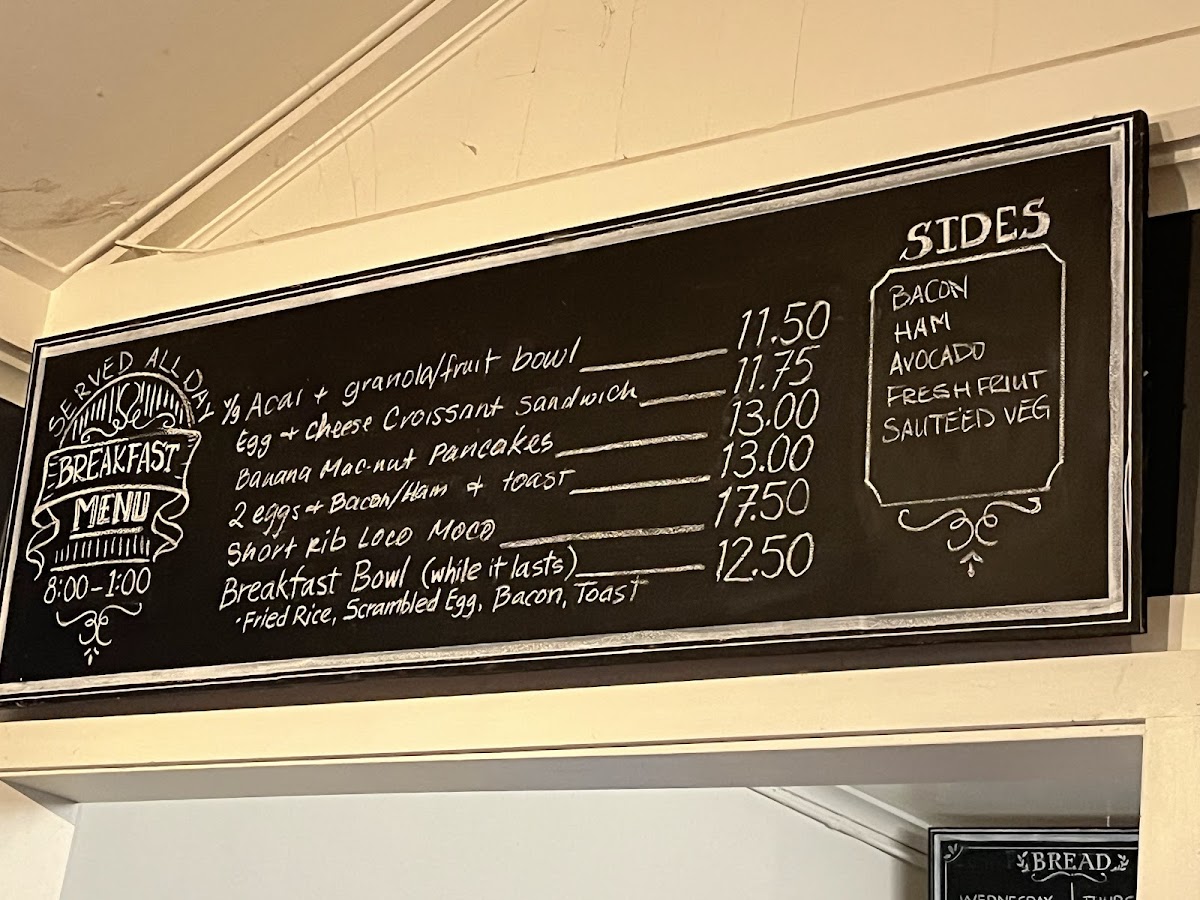 SERVED ALL DAY
BREAKFAST
MENU
8:00-1:00
V/g Acai + granola/fruit bowl 11.50
Egg + cheese Croissant sandwich 11.75
Banana Mac-nut Pancakes 13.00
2 eggs + Bacon/Ham + toast 13.00
Short Rib Loco Moco 17.50
Breakfast Bowl (while it lasts) 12.50
·Fried Rice, Scrambled Egg, Bacon, Toast
SIDES
BACON
HAM
AVOCADO
FRESH FRIUT
SAUTÉED VEG
BREAD
WEDNESDAY